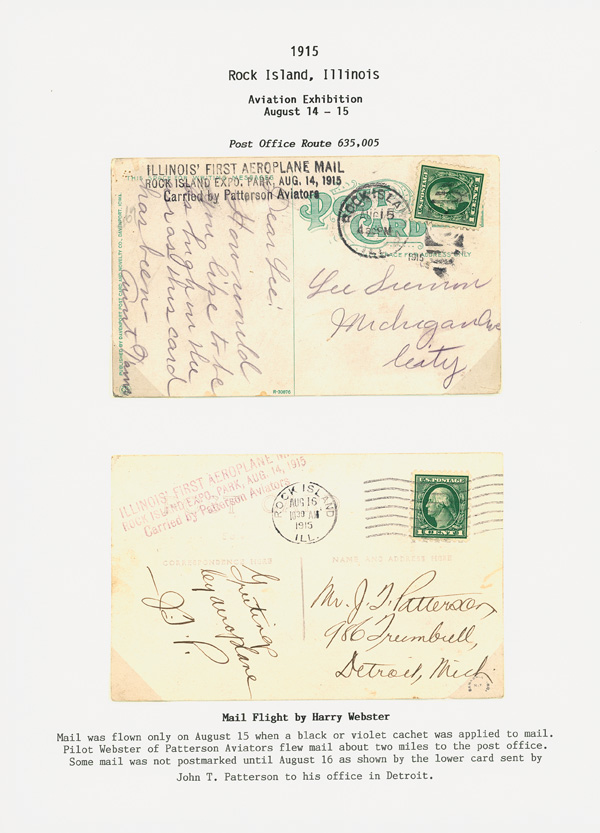 1915
Rock Island, Illinois
Aviation Exhibition
August 14 - 15
Post Office Route 635,005
ILLINOIS' FIRST AEROPLANE MAIL
ROCK ISLAND EXPO. PARK, AUG. 14, 1915
Carried by Patterson Aviators
POST CARD
ROCK ISLAND
AUG 15
PM
1915
ILL.
U.S. POSTAGE
Dear Lee:
How would
you like to be
as high in the
air as this card
has been
Aunt
Lee
Michigan Ave
City
ILLINOIS' FIRST AEROPLANE
ROCK ISLAND EXPO. PARK, AUG. 14, 1915
Carried by Patterson Aviators
ROCK ISLAND
AUG 16
AM
1915
ILL.
U.S. POSTAGE
1 CENT 1
CORRESPONDENCE HERE
NAME AND ADDRESS HERE
Greetings
by aeroplane
— J.T.P.
Mr. J. T. Patterson,
986 Trumbull,
Detroit, Mich.
Mail Flight by Harry Webster
Mail was flown only on August 15 when a black or violet cachet was applied to mail.
Pilot Webster of Patterson Aviators flew mail about two miles to the post office.
Some mail was not postmarked until August 16 as shown by the lower card sent by
John T. Patterson to his office in Detroit.